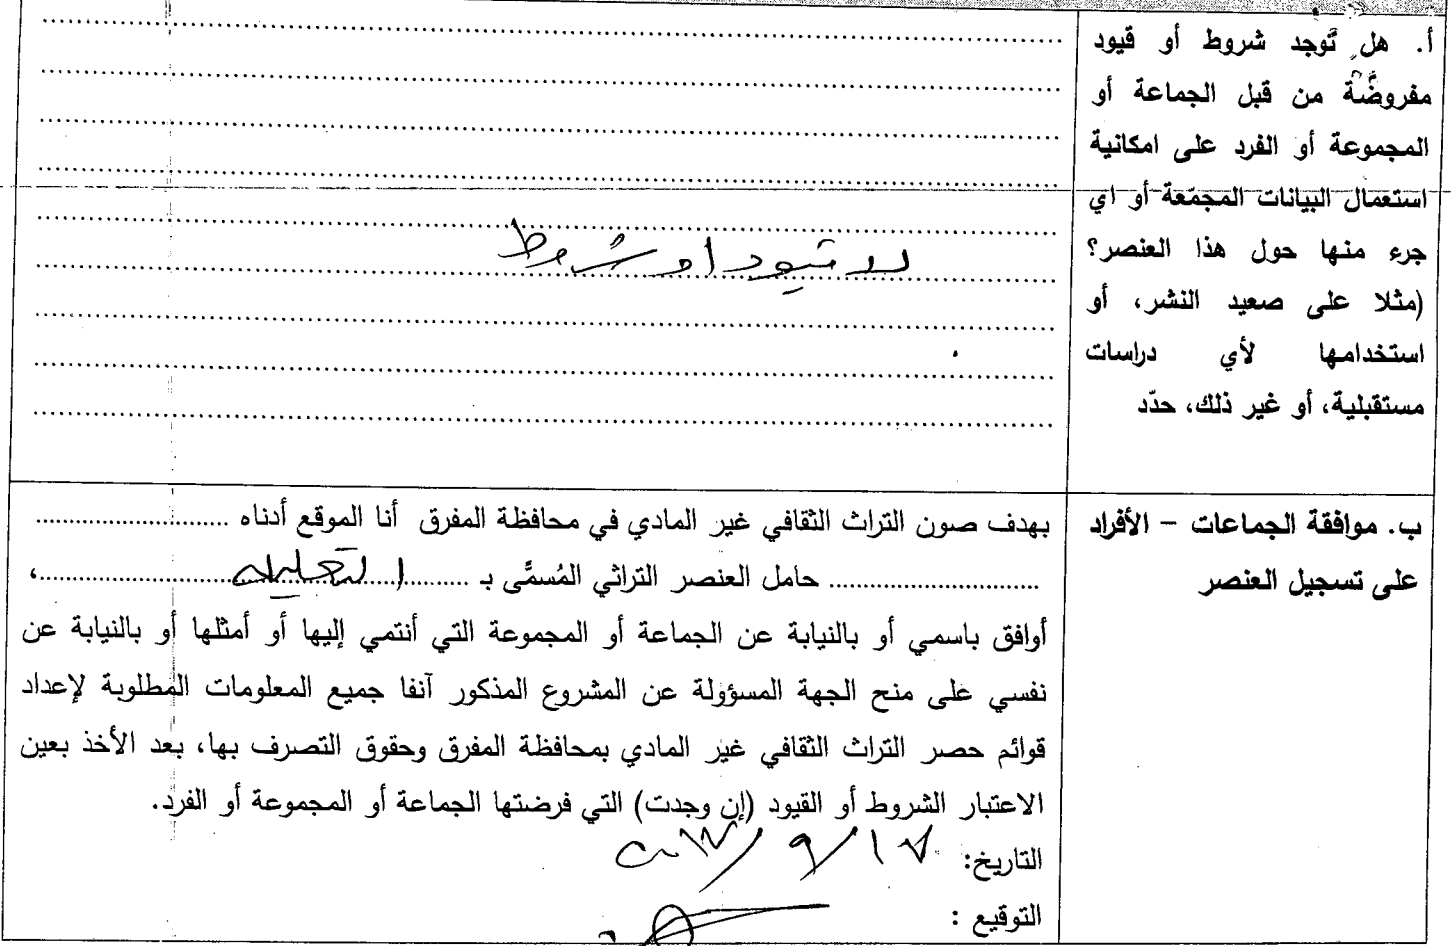 أ. هل تُوجد شروط أو قيود
مفروضَة من قبل الجماعة أو
المجموعة أو الفرد على امكانية
استعمال البيانات المجمّعة أو اي
جرء منها حول هذا العنصر؟
(مثلا على صعيد النشر، أو
استخدامها لأي دراسات
مستقبلية، أو غير ذلك، حدّد
لا قيود او شروط
ب. موافقة الجماعات – الأفراد
على تسجيل العنصر
بهدف صون التراث الثقافي غير المادي في محافظة المفرق أنا الموقع أدناه ............................
............................ حامل العنصر التراثي المُسمَّى بـ ............................،
أوافق باسمي أو بالنيابة عن الجماعة أو المجموعة التي أنتمي إليها أو أمثلها أو بالنيابة عن
نفسي على منح الجهة المسؤولة عن المشروع المذكور آنفا جميع المعلومات المطلوبة لإعداد
قوائم حصر التراث الثقافي غير المادي بمحافظة المفرق وحقوق التصرف بها، بعد الأخذ بعين
الاعتبار الشروط أو القيود (إن وجدت) التي فرضتها الجماعة أو المجموعة أو الفرد.
التاريخ: ١٧/٩/
التوقيع :